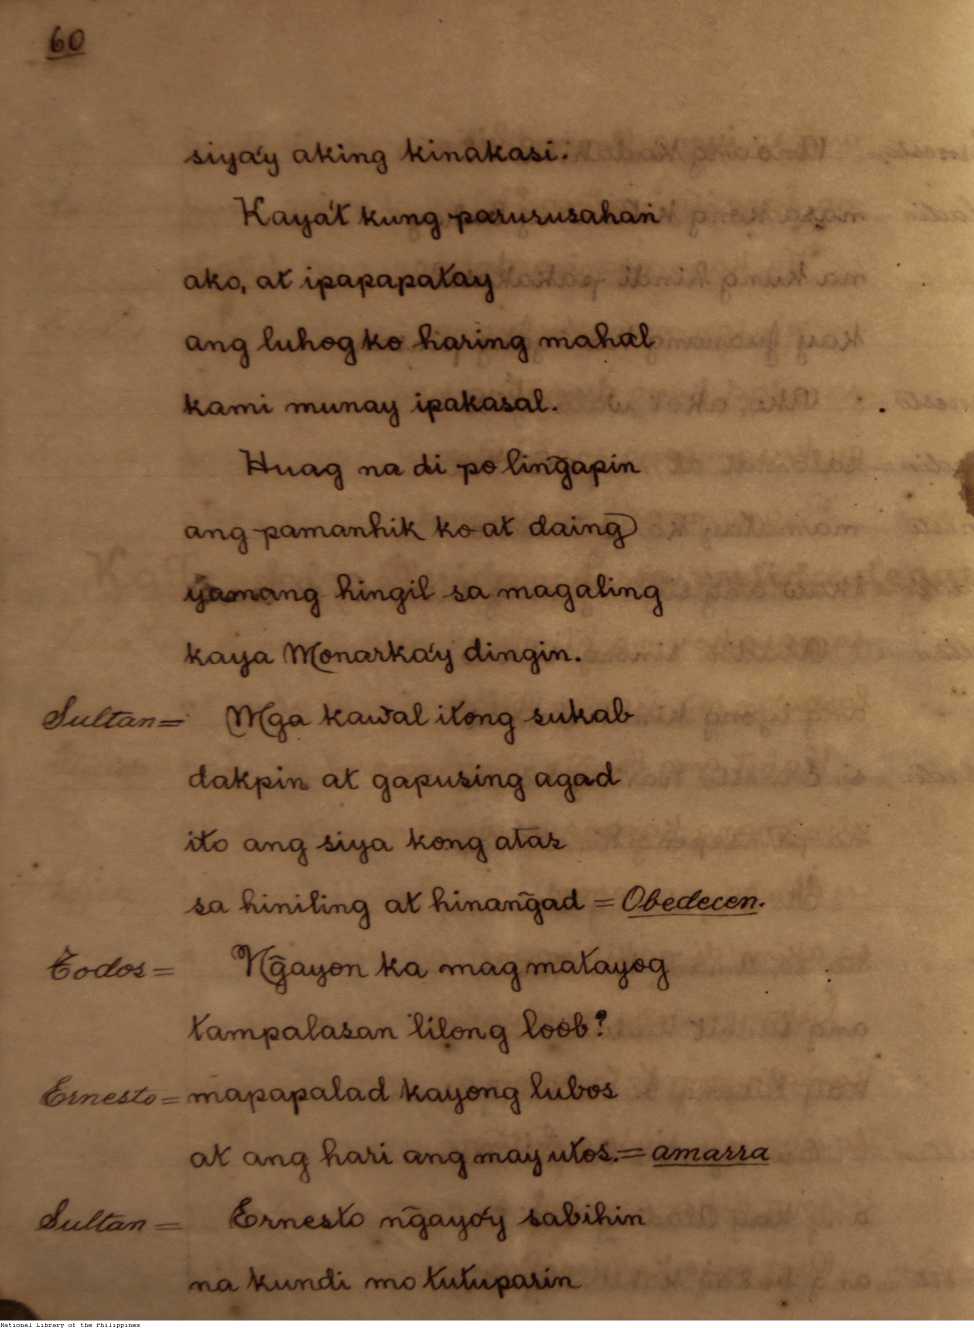 60
siya'y aking kinakasi.
Kaya't kung parurusahan
ako, at ipapapatay
ang luhog ko haring mahal
kami munay ipakasal.
Huag na di po lin͠gapin
ang pamanhik ko at daing
yamang hingil sa magaling
kaya Monarka'y dingin.
Sultan= Mga kawal itong sukab
dakpin at gapusing agad
ito ang siya kong atas
sa hiniling at hinan͠gad = Obedecen.
Todos= N͠gayon ka magmatayog
tampalasan lilong loob?
Ernesto= mapapalad kayong lubos
at ang hari ang may utos.= amarra
Sultan= Ernesto n͠gayo'y sabihin
na kundi mo tutuparin
National Library of the Philippines